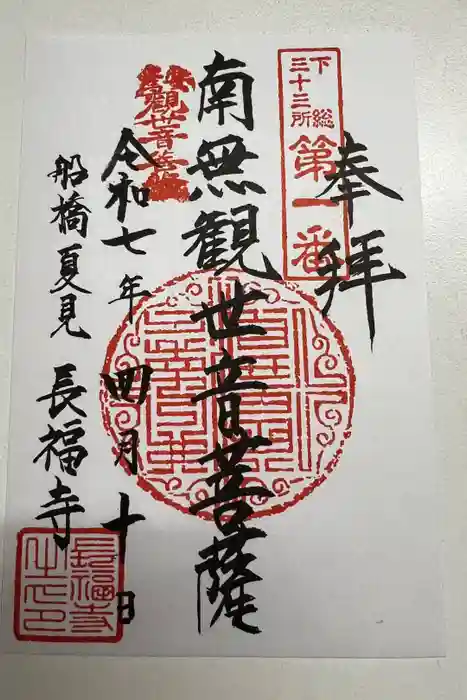 奉拝
下総
三十三所
第一番
南無観世音菩薩
觀世音菩薩
令和七年四月十日
船橋夏見
長福寺
長福寺
之印